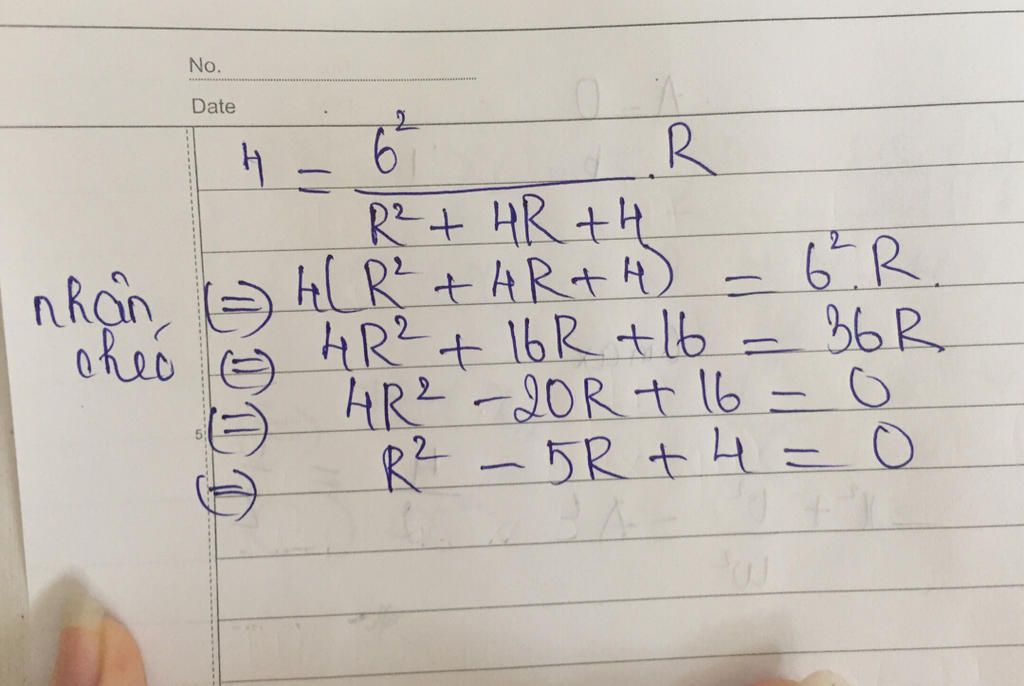 No.
Date
4 = 6² / (R² + 4R + 4) . R
nhân chéo (=) 4(R² + 4R + 4) = 6².R.
(=) 4R² + 16R + 16 = 36R
(=) 4R² - 20R + 16 = 0
5 (=) R² - 5R + 4 = 0